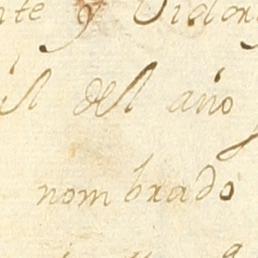 nte y Vidor
il del año
nombrado